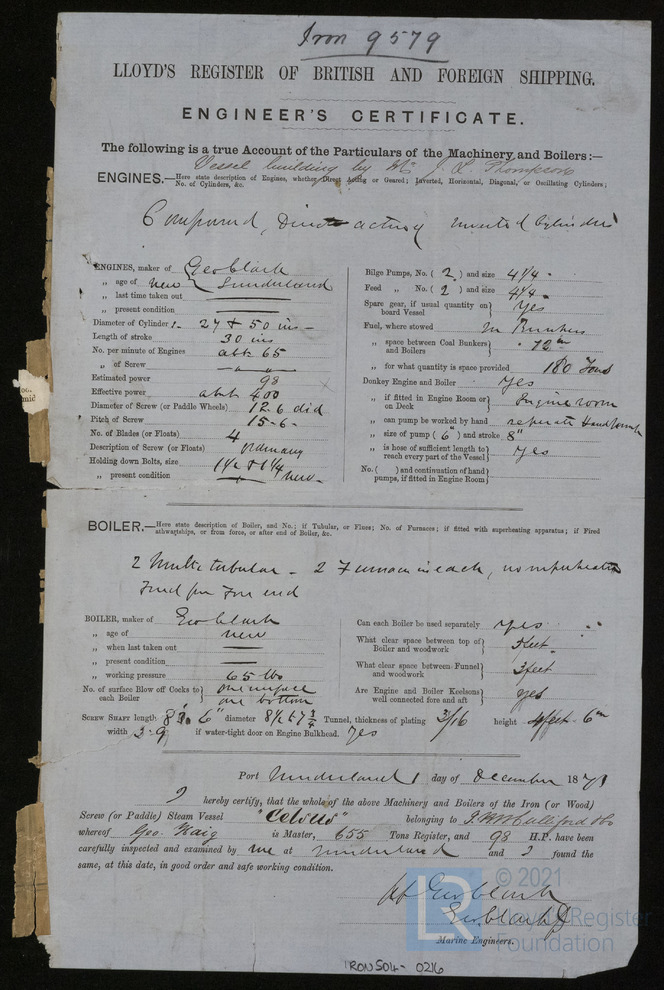 Iron 9579
LLOYD'S REGISTER OF BRITISH AND FOREIGN SHIPPING.
ENGINEER'S CERTIFICATE.
The following is a true Account of the Particulars of the Machinery and Boilers:—
Vessel building by Mr J. L. Thompson
ENGINES.—Here state description of Engines, whether Direct Acting or Geared; Inverted, Horizontal, Diagonal, or Oscillating Cylinders;
No. of Cylinders, &c.
Compound, Direct acting Inverted Cylinders
ENGINES, maker of Geo Clark
„ age of new Sunderland
„ last time taken out
„ present condition
Diameter of Cylinder 27 & 50 ins
Length of stroke 30 ins
No. per minute of Engines abt. 65
„ of Screw „
Estimated power 98
Effective power about 400
Diameter of Screw (or Paddle Wheels) 12.6 did
Pitch of Screw 15-6-
No. of Blades (or Floats) 4
Description of Screw (or Floats) Ordinary
Holding down Bolts, size & 1 1/4
„ present condition new
Bilge Pumps, No. (2) and size 4 1/4
Feed „ No. (2) and size 4 1/4
Spare gear, if usual quantity on board Vessel Yes
Fuel, where stowed In Bunkers
„ space between Coal Bunkers and Boilers 12 in
„ for what quantity is space provided 180 Tons
Donkey Engine and Boiler Yes
„ if fitted in Engine Room or on Deck Engine room
„ can pump be worked by hand seperate Hand Pump
„ size of pump (6") and stroke 8"
„ is hose of sufficient length to reach every part of the Vessel Yes
No. ( ) and continuation of hand pumps, if fitted in Engine Room
BOILER.—Here state description of Boiler, and No.; if Tubular, or Flues; No. of Furnaces; if fitted with superheating apparatus; if Fired
athwartships, or from force, or after end of Boiler, &c.
2 Multitubular - 2 Furnaces in each, no superheater
Fired for Fore end
BOILER, maker of Geo Clark
„ age of new
„ when last taken out
„ present condition
„ working pressure 65 lbs
No. of surface Blow off Cocks to each Boiler one surface one bottom
Can each Boiler be used separately yes
What clear space between top of Boiler and woodwork 5 feet
What clear space between Funnel and woodwork 3 feet
Are Engine and Boiler Keelsons well connected fore and aft yes
SCREW SHAFT length 6" diameter Tunnel, thickness of plating 3/16 height 4 feet-6 in
width 3-9 if water-tight door on Engine Bulkhead. Yes
Port Sunderland 1 day of December 1871
I hereby certify, that the whole of the above Machinery and Boilers of the Iron (or Wood)
Screw (or Paddle) Steam Vessel "Celsus" belonging to J. H. W. Culliford & Co
whereof Geo. Haig is Master, 655 Tons Register, and 98 H.P. have been
carefully inspected and examined by me at Sunderland and I found the
same, at this date, in good order and safe working condition.
Geo Clark
Geo. Clark Jr
Marine Engineers.
LR © 2021
Lloyd's Register
Foundation
IRONS04-0216